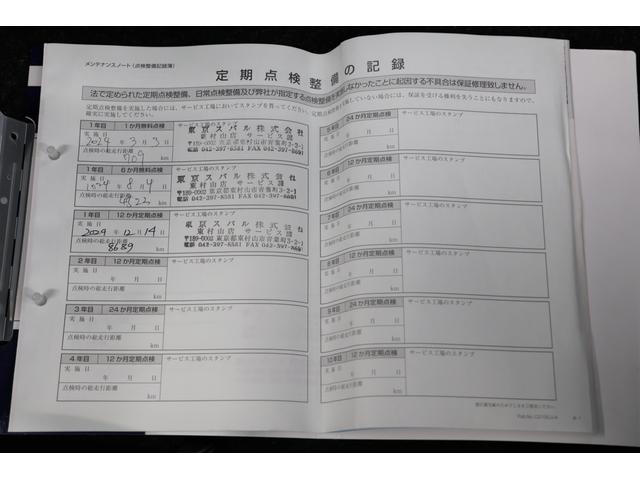 メンテナンスノート（点検整備記録簿）
定期点検整備の記録
法で定められた定期点検整備、日常点検整備及び弊社が指定する点検整備を実施しなかったことに起因する不具合は保証修理致しません。
定期点検整備を実施した場合には、サービス工場においてスタンプを貰ってください。
確実に実施して
していない場合には、保証を受ける権利を失うことにもなりますので、
1年目 1か月無料点検
サービス工場のスタンプ
実施日
2024年3月3日
点検時の総走行距離
709 km
東京スバル株式会社
東村山店 サービス課
〒189-0002 東京都東村山市青葉町3-2-1
電話 042-397-8581 FAX 042-397-8691
1年目 6か月無料点検
サービス工場のスタンプ
実施日
年8月4日
点検時の総走行距離
km
東京スバル株式会社
東村山店 サービス課
〒189-0002 東京都東村山市青葉町3-2-1
電話 042-397-8581 FAX 042-397-8691
1年目 12か月定期点検
サービス工場のスタンプ
実施日
2024年12月14日
点検時の総走行距離
8689 km
東京スバル株式会社
東村山店 サービス課
〒189-0002 東京都東村山市青葉町3-2-1
電話 042-397-8581 FAX 042-397-8691
2年目 12か月定期点検
サービス工場のスタンプ
実施日
年 月 日
点検時の総走行距離
km
3年目 24か月定期点検
サービス工場のスタンプ
実施日
年 月 日
点検時の総走行距離
km
4年目 12か月定期点検
サービス工場のスタンプ
実施日
年 月 日
点検時の総走行距離
km
24か月定期点検
サービス工場のスタンプ
年 月 日
点検時の総走行距離
km
12か月定期点検
サービス工場のスタンプ
年 月 日
点検時の総走行距離
km
24か月定期点検
サービス工場のスタンプ
年 月 日
点検時の総走行距離
km
12か月定期点検
サービス工場のスタンプ
実施日
年 月 日
点検時の総走行距離
km
9年目 24か月定期点検
サービス工場のスタンプ
実施日
年 月 日
点検時の総走行距離
km
10年目 12か月定期点検
サービス工場のスタンプ
実施日
年 月 日
点検時の総走行距離
km